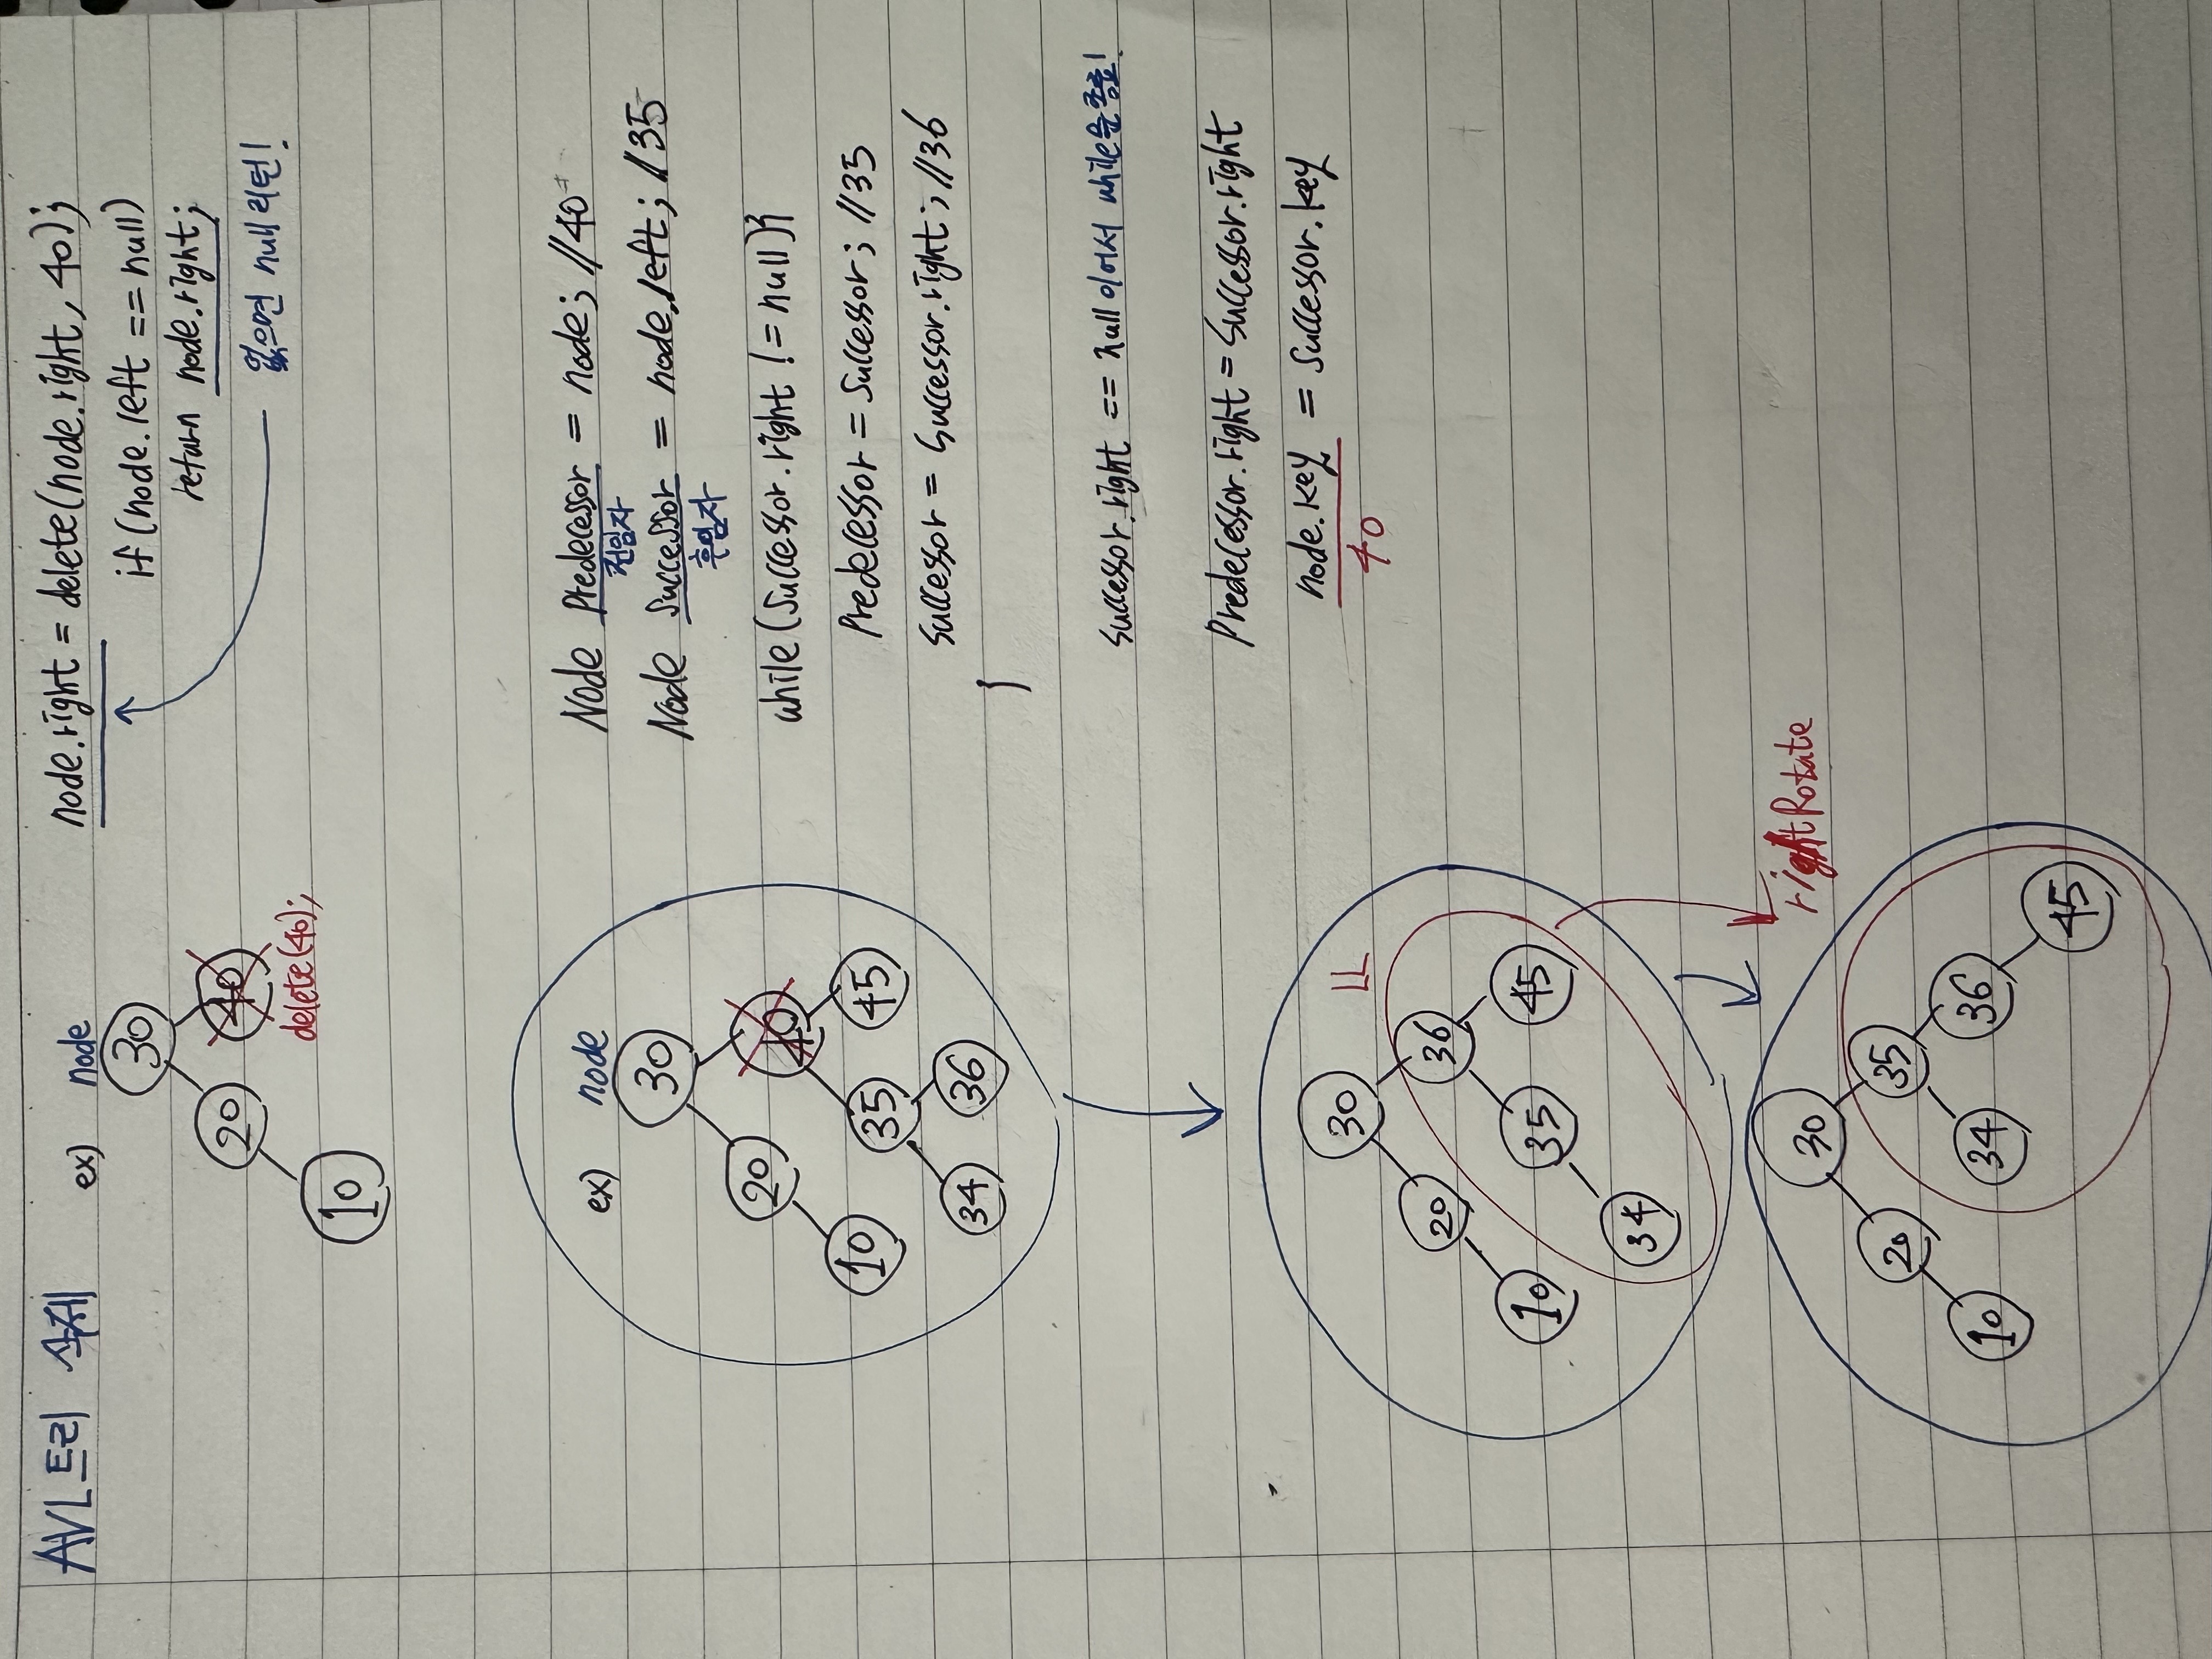 AVL트리 삭제
ex) node
30
20
40
10
delete(40);
node.right = delete(node.right, 40);
if(node.left == null)
return node.right;
없으면 null 리턴!
ex) node
30
20
40
10
35
45
34
36
Node Predecessor = node; //40
전임자
Node Successor = node.left; //35
후임자
while(Successor.right != null){
Predecessor = Successor; //35
Successor = Successor.right; //36
}
Successor.right == null 이어서 while문 종료!
Predecessor.right = Successor.right
node.key = Successor.key
40
LL
30
20
36
10
35
45
34
rightRotate
30
20
35
10
34
36
45